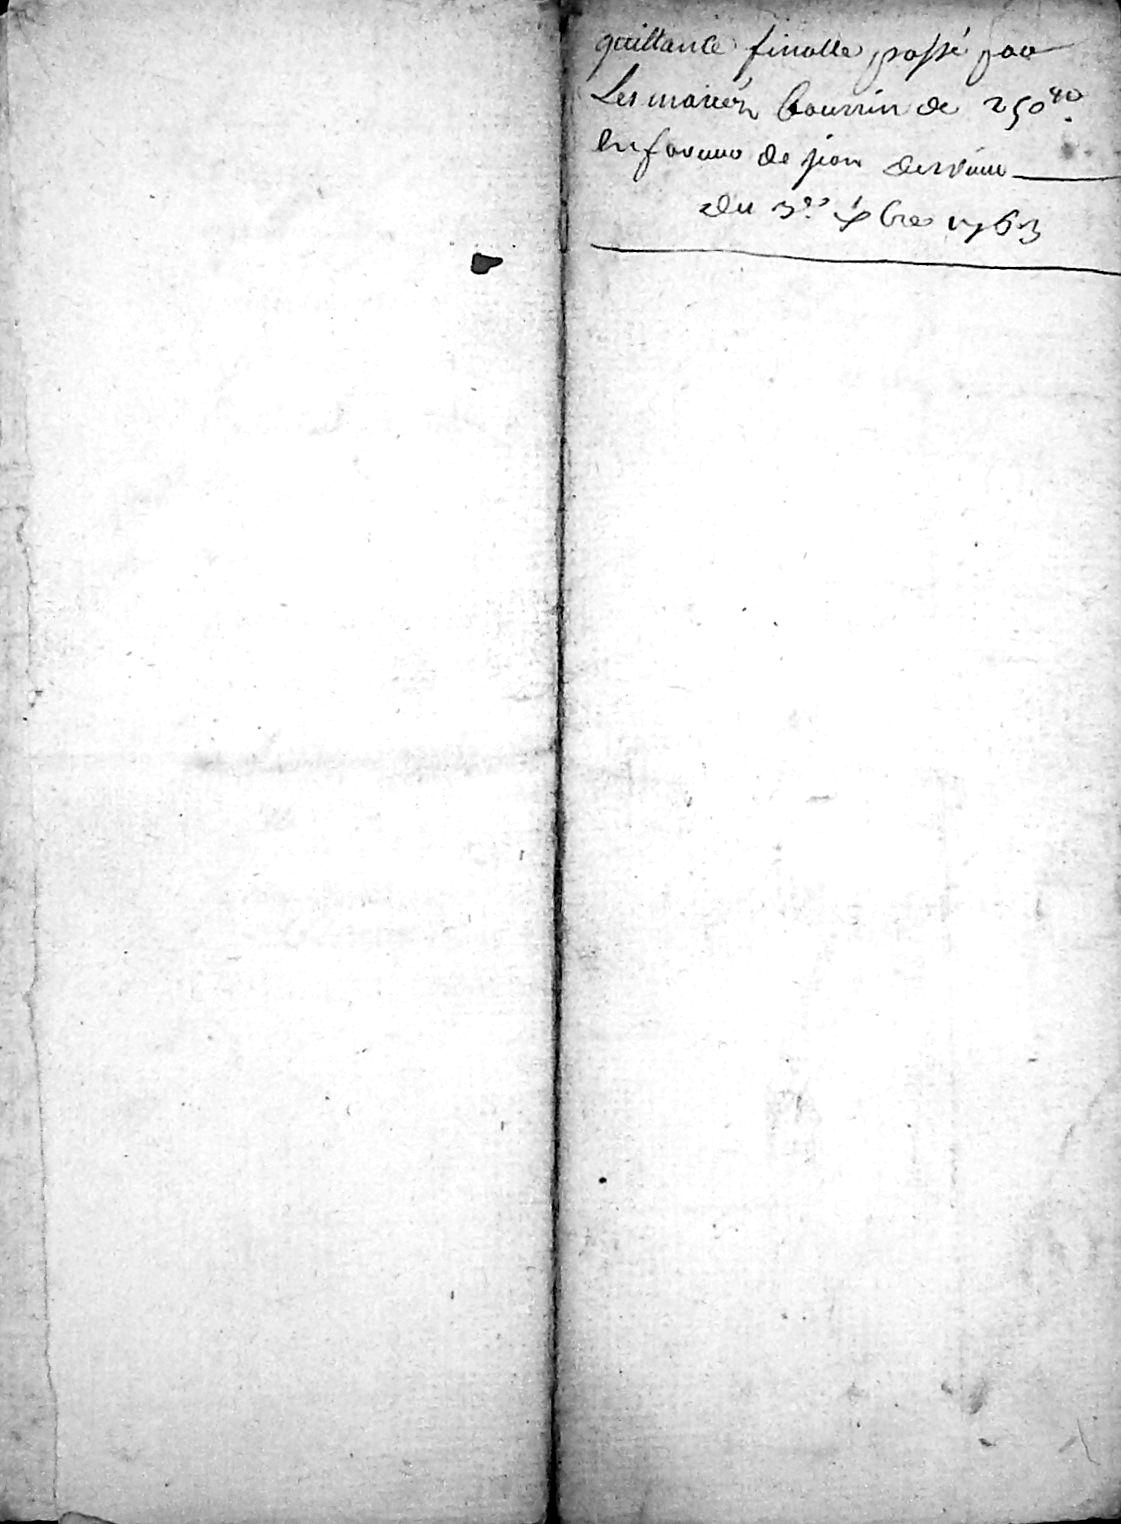 quittance finalle passé par
Les mariés bourrin de 250 ⁿ.
En faveur de jean
du 3e xbre 1763